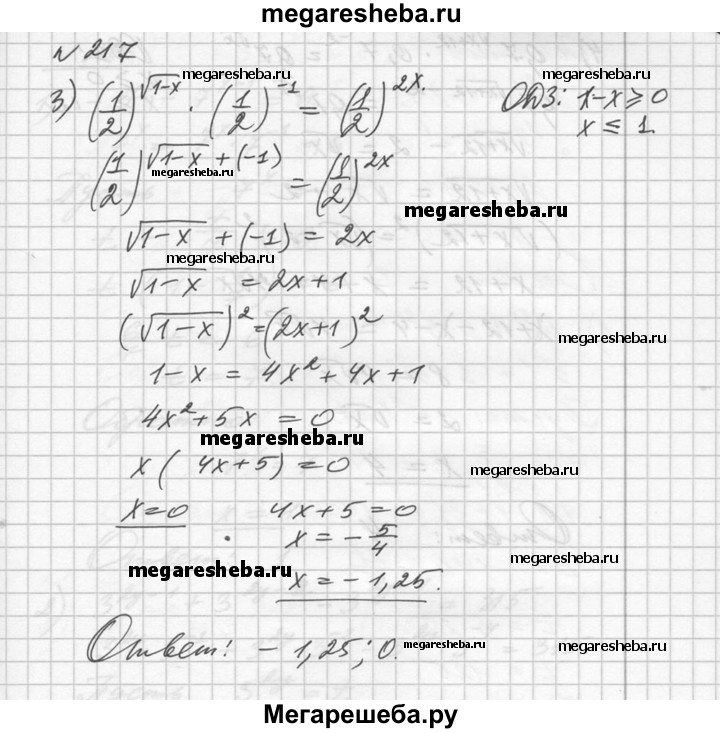 megaresheba.ru
№ 217
megaresheba.ru megaresheba.ru
3) (1/2)^√(1-x) · (1/2)^-1 = (1/2)^2x. ОДЗ: 1-x ⩾ 0
x ≤ 1
(1/2)^(√(1-x) + (-1)) = (1/2)^2x
megaresheba.ru
megaresheba.ru
√(1-x) + (-1) = 2x
megaresheba.ru
√(1-x) = 2x+1
(√(1-x))² = (2x+1)²
megaresheba.ru
1-x = 4x² + 4x + 1
4x² + 5x = 0
megaresheba.ru
x ( 4x+5) = 0
megaresheba.ru
x=0 4x+5 = 0
x = - 5/4
megaresheba.ru
megaresheba.ru
x = - 1,25.
Ответ: - 1,25; 0.
megaresheba.ru megaresheba.ru
Мегарешеба.ру